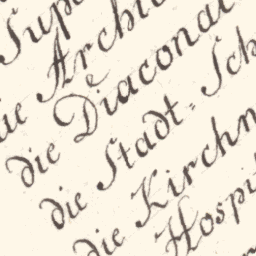 Sup
die Archi
die Diaconat
die Stadt= Sch
die Kirchn
Hospi